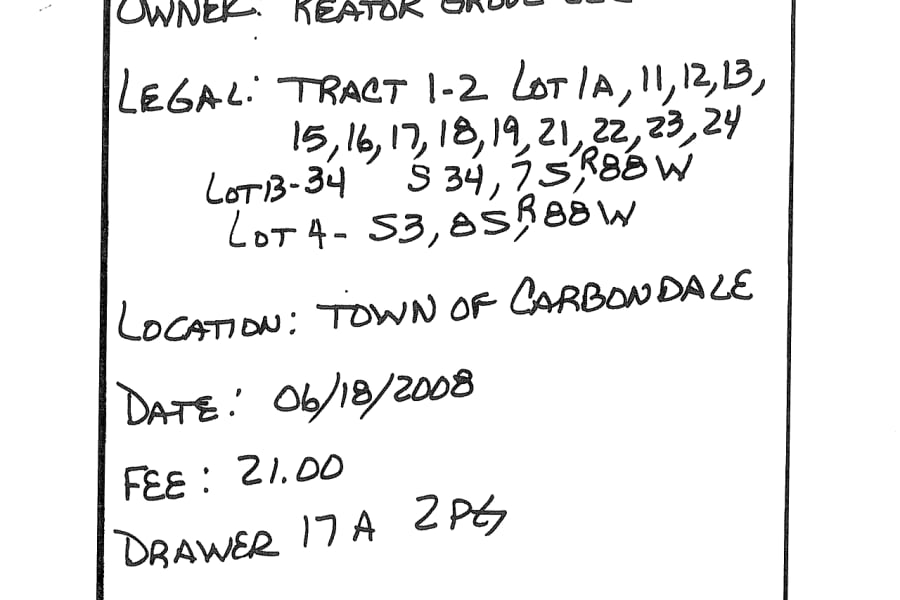 OWNER: KEATOR GROVE LLC
LEGAL: TRACT 1-2 LOT 1A, 11, 12, 13,
15, 16, 17, 18, 19, 21, 22, 23, 24
LOT 13-34 S 34, 7S, R88W
LOT 4- S3, 8S, R88W
LOCATION: TOWN OF CARBONDALE
DATE: 06/18/2008
FEE: 21.00
DRAWER 17A 2 PG